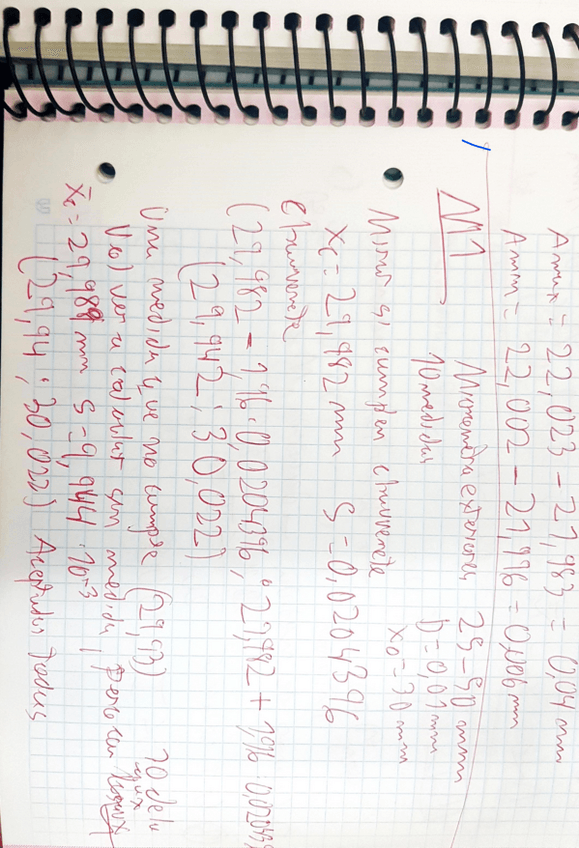 Amax = 22,023 - 21,983 = 0,04 mm
Amin = 22,002 - 21,996 = 0,006 mm
M1 Micrometro exteriores 25-50 mm
10 medidas D=0,01 mm
x0 = 30 mm
Miro si cumplen chauvenete
xc = 29,982 mm S = 0,0204396
Chauvenete
(29,982 - 1,96 · 0,0204396 ; 29,982 + 1,96 · 0,020439
(29,942 ; 30,022)
Una medida que no cumple (29,93)
Vuelvo a calcular sin medida, pero con 10 de la
xc = 29,988 mm S = 9,944 · 10-3
(29,94 ; 30,022) Aceptadas todas